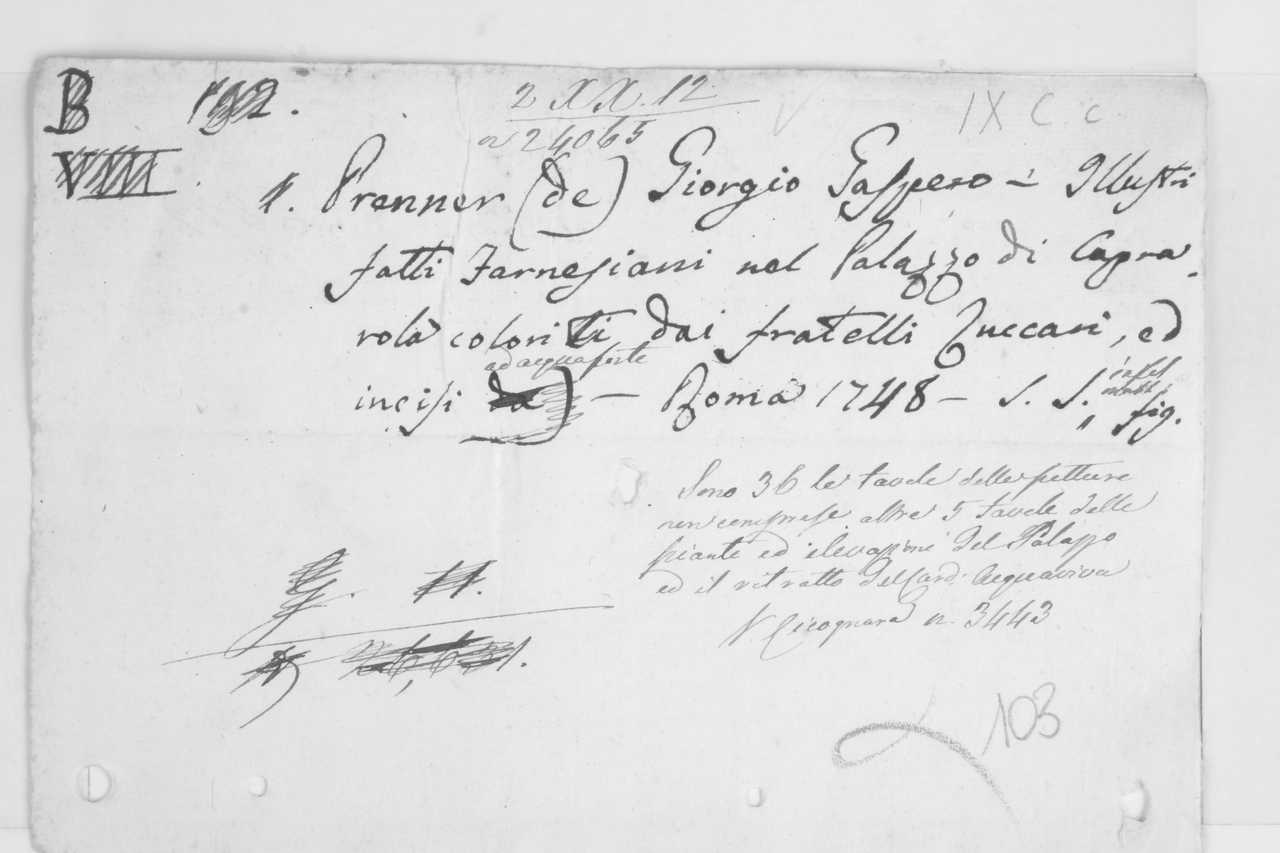 B 192. 2 XX.12 IX C. c.
n 24065
VIII
1. Prenner (de) Giorgio Gasparo - Illustri
fatti Farnesiani nel Palazzo di Capra-
rola coloriti dai fratelli Zuccari, ed
ad acquaforte
incisi da) — Roma 1748 - S. S. fig.
Sono 36 le tavole delle pitture
non comprese altre 5 tavole delle
piante ed elevazioni del Palazzo
ed il ritratto del Card. Acquaviva
V. Cicognara n. 3443
11.
26,631.
103